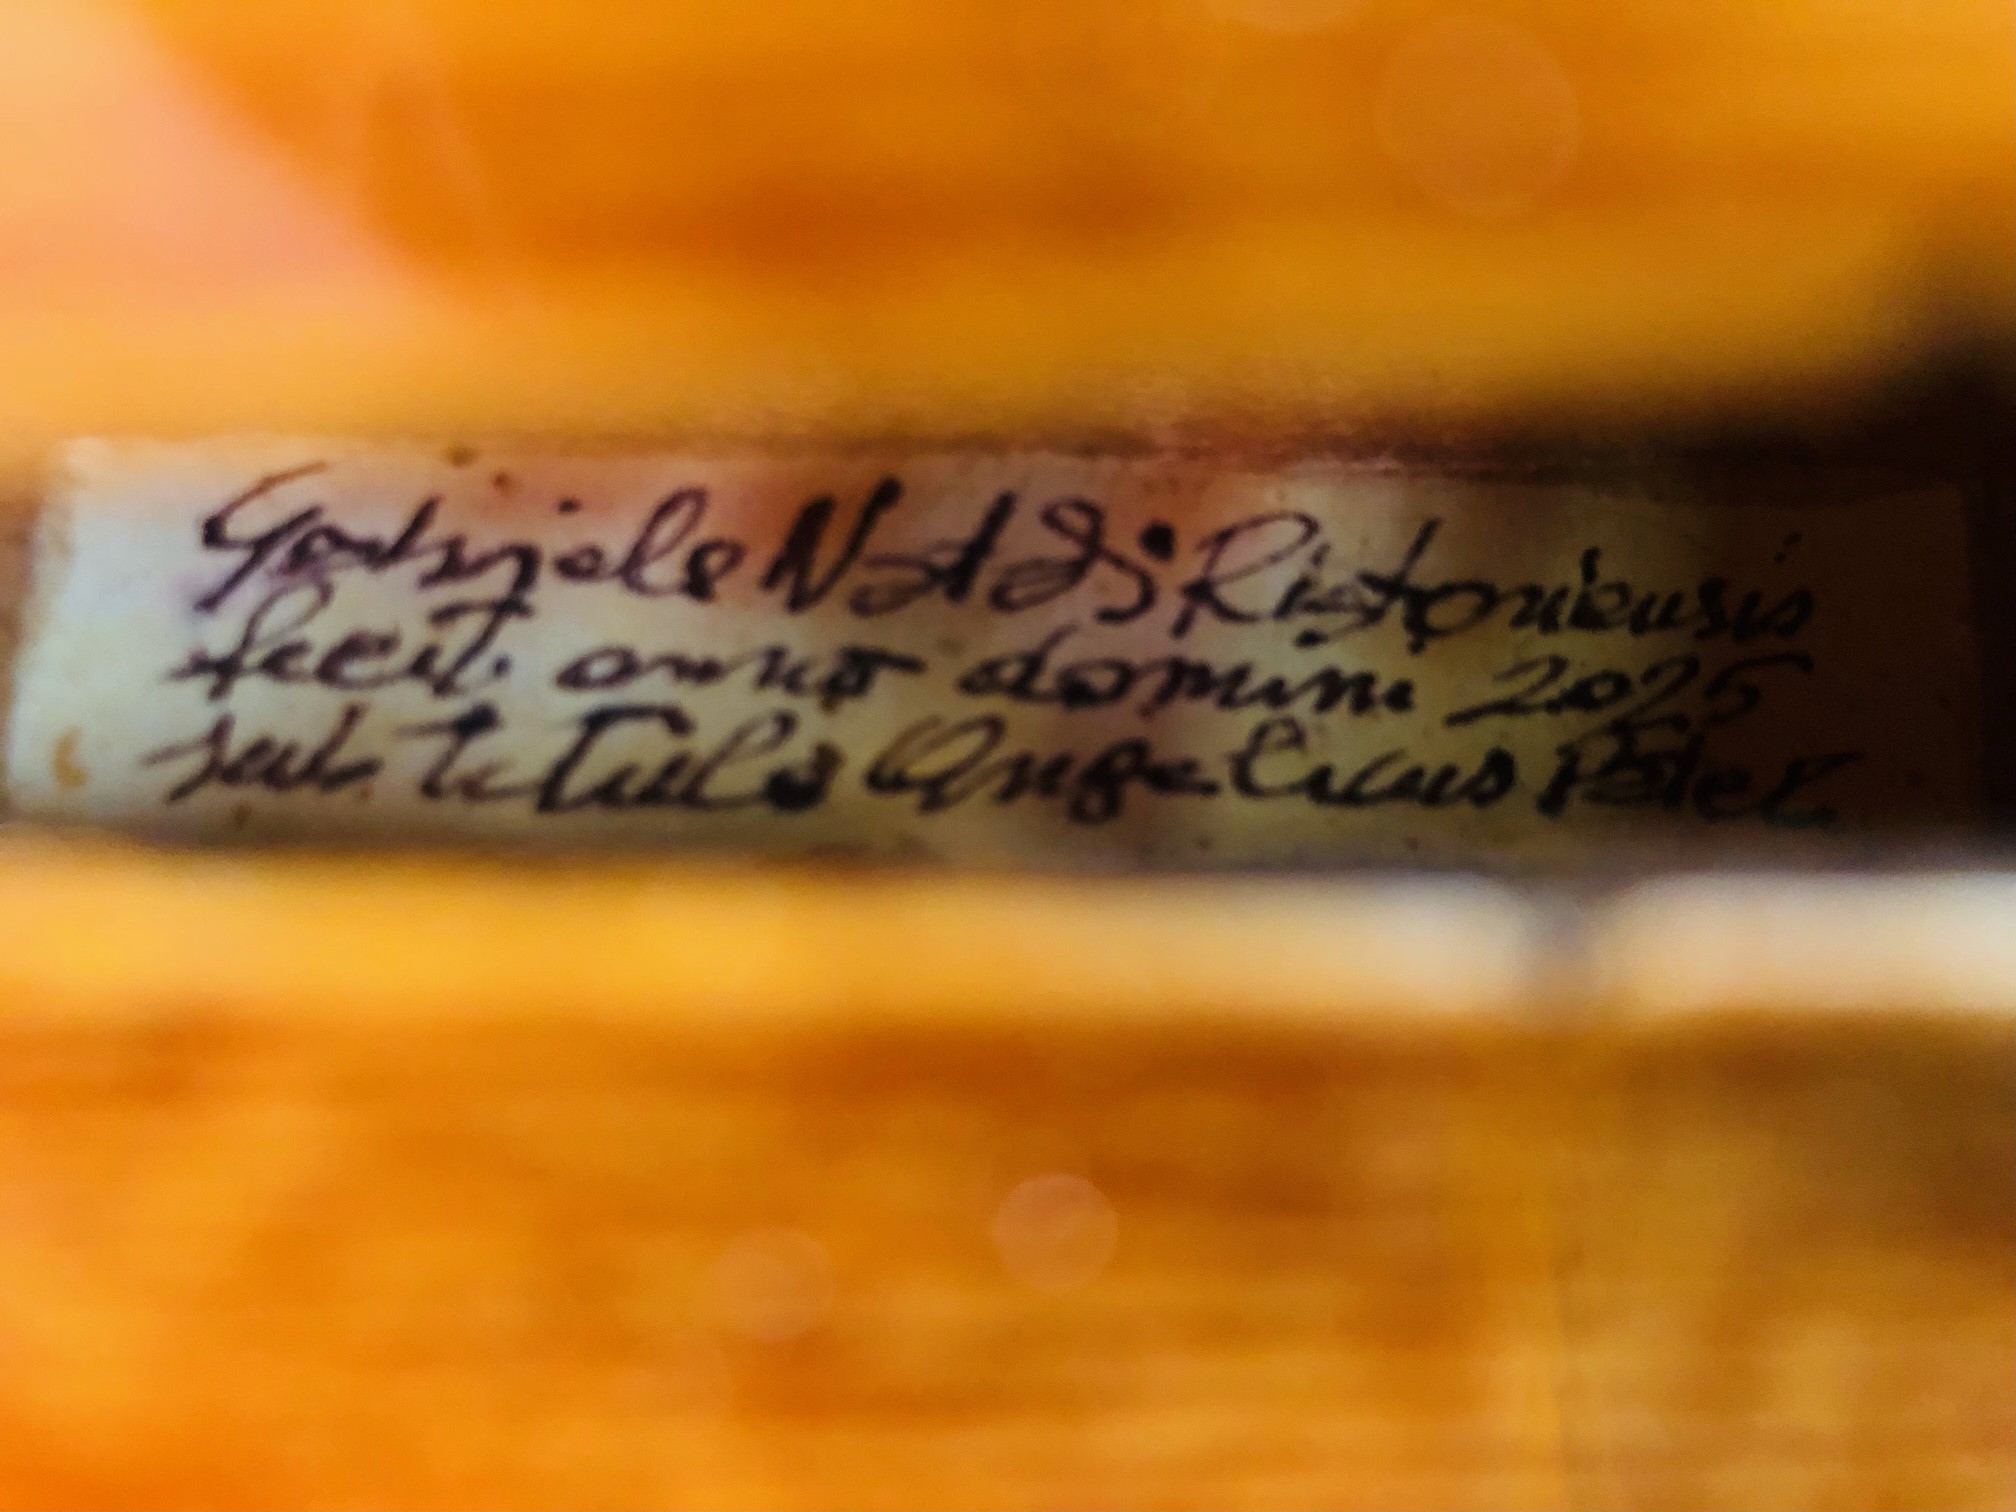 Gabriele Natali Ristoniensis
fecit anno domini 2025
sub titulo Angelicus Pater